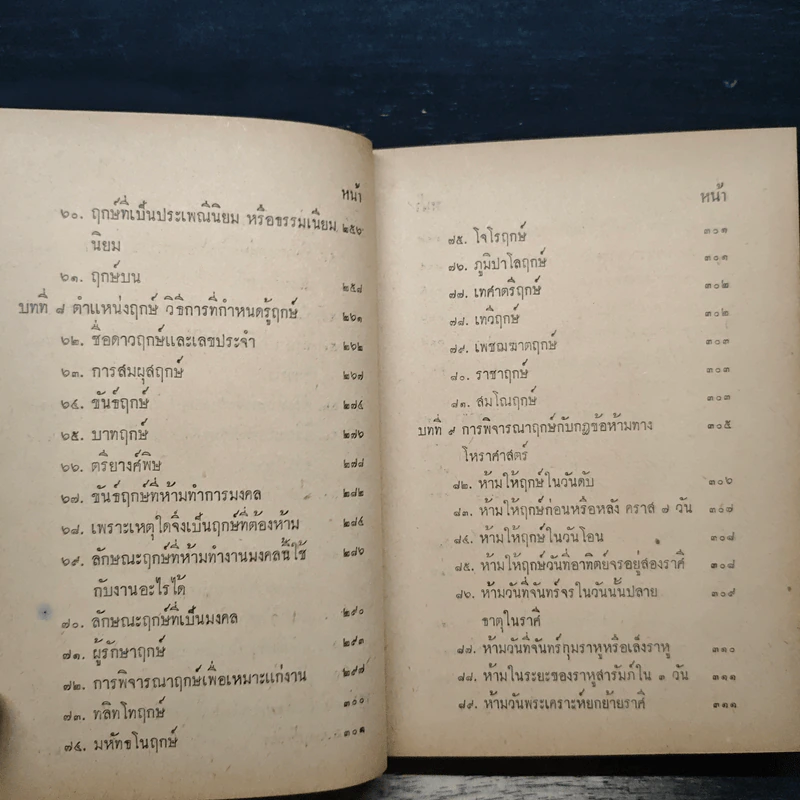 หน้า
๖๐. ฤกษ์ที่เป็นประเพณีนิยม หรือธรรมเนียม ๒๕๖
นิยม
๖๑. ฤกษ์บน ๒๕๘
บทที่ ๘ ตำแหน่งฤกษ์ วิธีการที่กำหนดรู้ฤกษ์ ๒๖๑
๖๒. ชื่อดาวฤกษ์และเลขประจำ ๒๖๒
๖๓. การสมผุสฤกษ์ ๒๖๗
๖๔. ขันธ์ฤกษ์ ๒๗๔
๖๕. บาทฤกษ์ ๒๗๖
๖๖. ตรียางค์พิษ ๒๗๘
๖๗. ขันธ์ฤกษ์ที่ห้ามทำการมงคล ๒๘๒
๖๘. เพราะเหตุใดจึงเป็นฤกษ์ที่ต้องห้าม ๒๘๔
๖๙. ลักษณะฤกษ์ที่ห้ามทำงานมงคลนี้ใช้ ๒๘๖
กับงานอะไรได้
๗๐. ลักษณะฤกษ์ที่เป็นมงคล ๒๙๐
๗๑. ผู้รักษาฤกษ์ ๒๙๓
๗๒. การพิจารณาฤกษ์เพื่อเหมาะแก่งาน ๒๙๗
๗๓. ทลิทโทฤกษ์ ๓๐๐
๗๔. มหัทธโนฤกษ์ ๓๐๑
หน้า
๗๕. โจโรฤกษ์ ๓๐๑
๗๖. ภูมิปาโลฤกษ์ ๓๐๑
๗๗. เทศาตรีฤกษ์ ๓๐๒
๗๘. เทวีฤกษ์ ๓๐๒
๗๙. เพชฌฆาตฤกษ์ ๓๐๓
๘๐. ราชาฤกษ์ ๓๐๓
๘๑. สมโณฤกษ์ ๓๐๓
บทที่ ๙ การพิจารณาฤกษ์กับกฎข้อห้ามทาง ๓๐๕
โหราศาสตร์
๘๒. ห้ามให้ฤกษ์ในวันดับ ๓๐๖
๘๓. ห้ามให้ฤกษ์ก่อนหรือหลัง คราส ๗ วัน ๓๐๗
๘๔. ห้ามให้ฤกษ์ในวันโอน ๓๐๘
๘๕. ห้ามให้ฤกษ์วันที่อาทิตย์จรอยู่สองราศี ๓๐๘
๘๖. ห้ามวันที่จันทร์จรในวันนั้นปลาย ๓๐๙
ธาตุในราศี
๘๗. ห้ามวันที่จันทร์กุมราหูหรือเล็งราหู ๓๑๐
๘๘. ห้ามในระยะของราหูสารัมภ์ใน ๓ วัน ๓๑๑
๘๙. ห้ามวันพระเคราะห์ยกย้ายราศี ๓๑๑